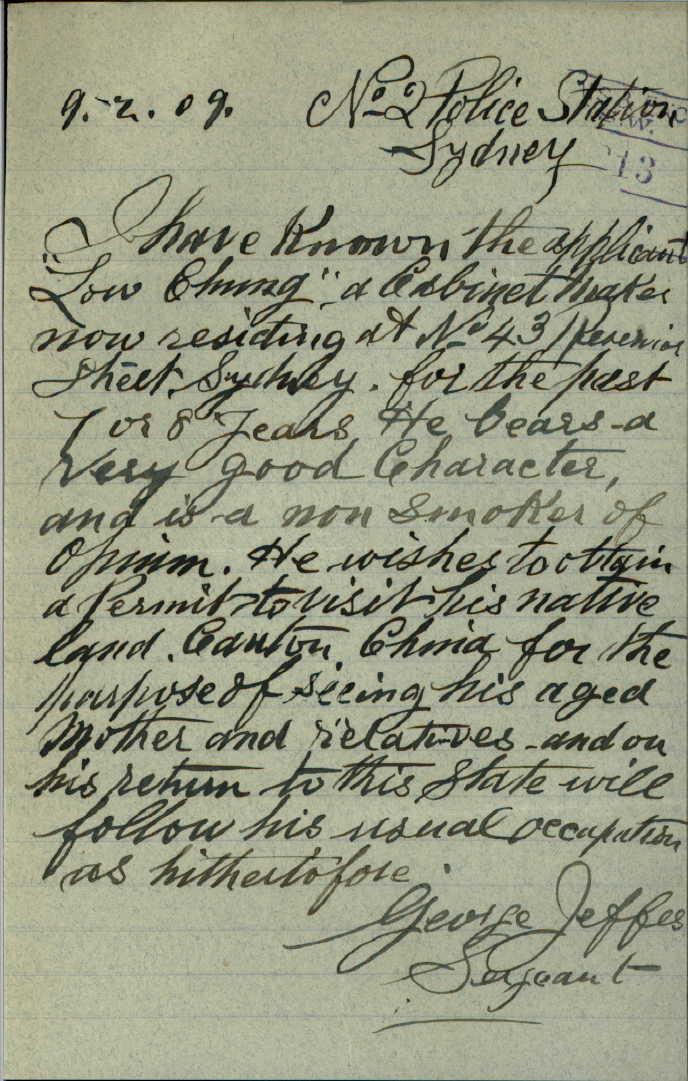 9.-2.09. No 2 Police Station
Sydney
13
I have Known the applicant
"Low Chung" a Cabinet Maker
now residing at No 43
Street, Sydney. for the past
7 or 8 Years He bears a
Very good Character,
and is a non Smoker of
Opium. He wishes to obtain
a Permit to visit his native
land. Canton China for the
purpose of seeing his aged
Mother and relatives - and on
his return to this State will
follow his usual occupation
as hithertofore.
George Jeffes
Sergeant